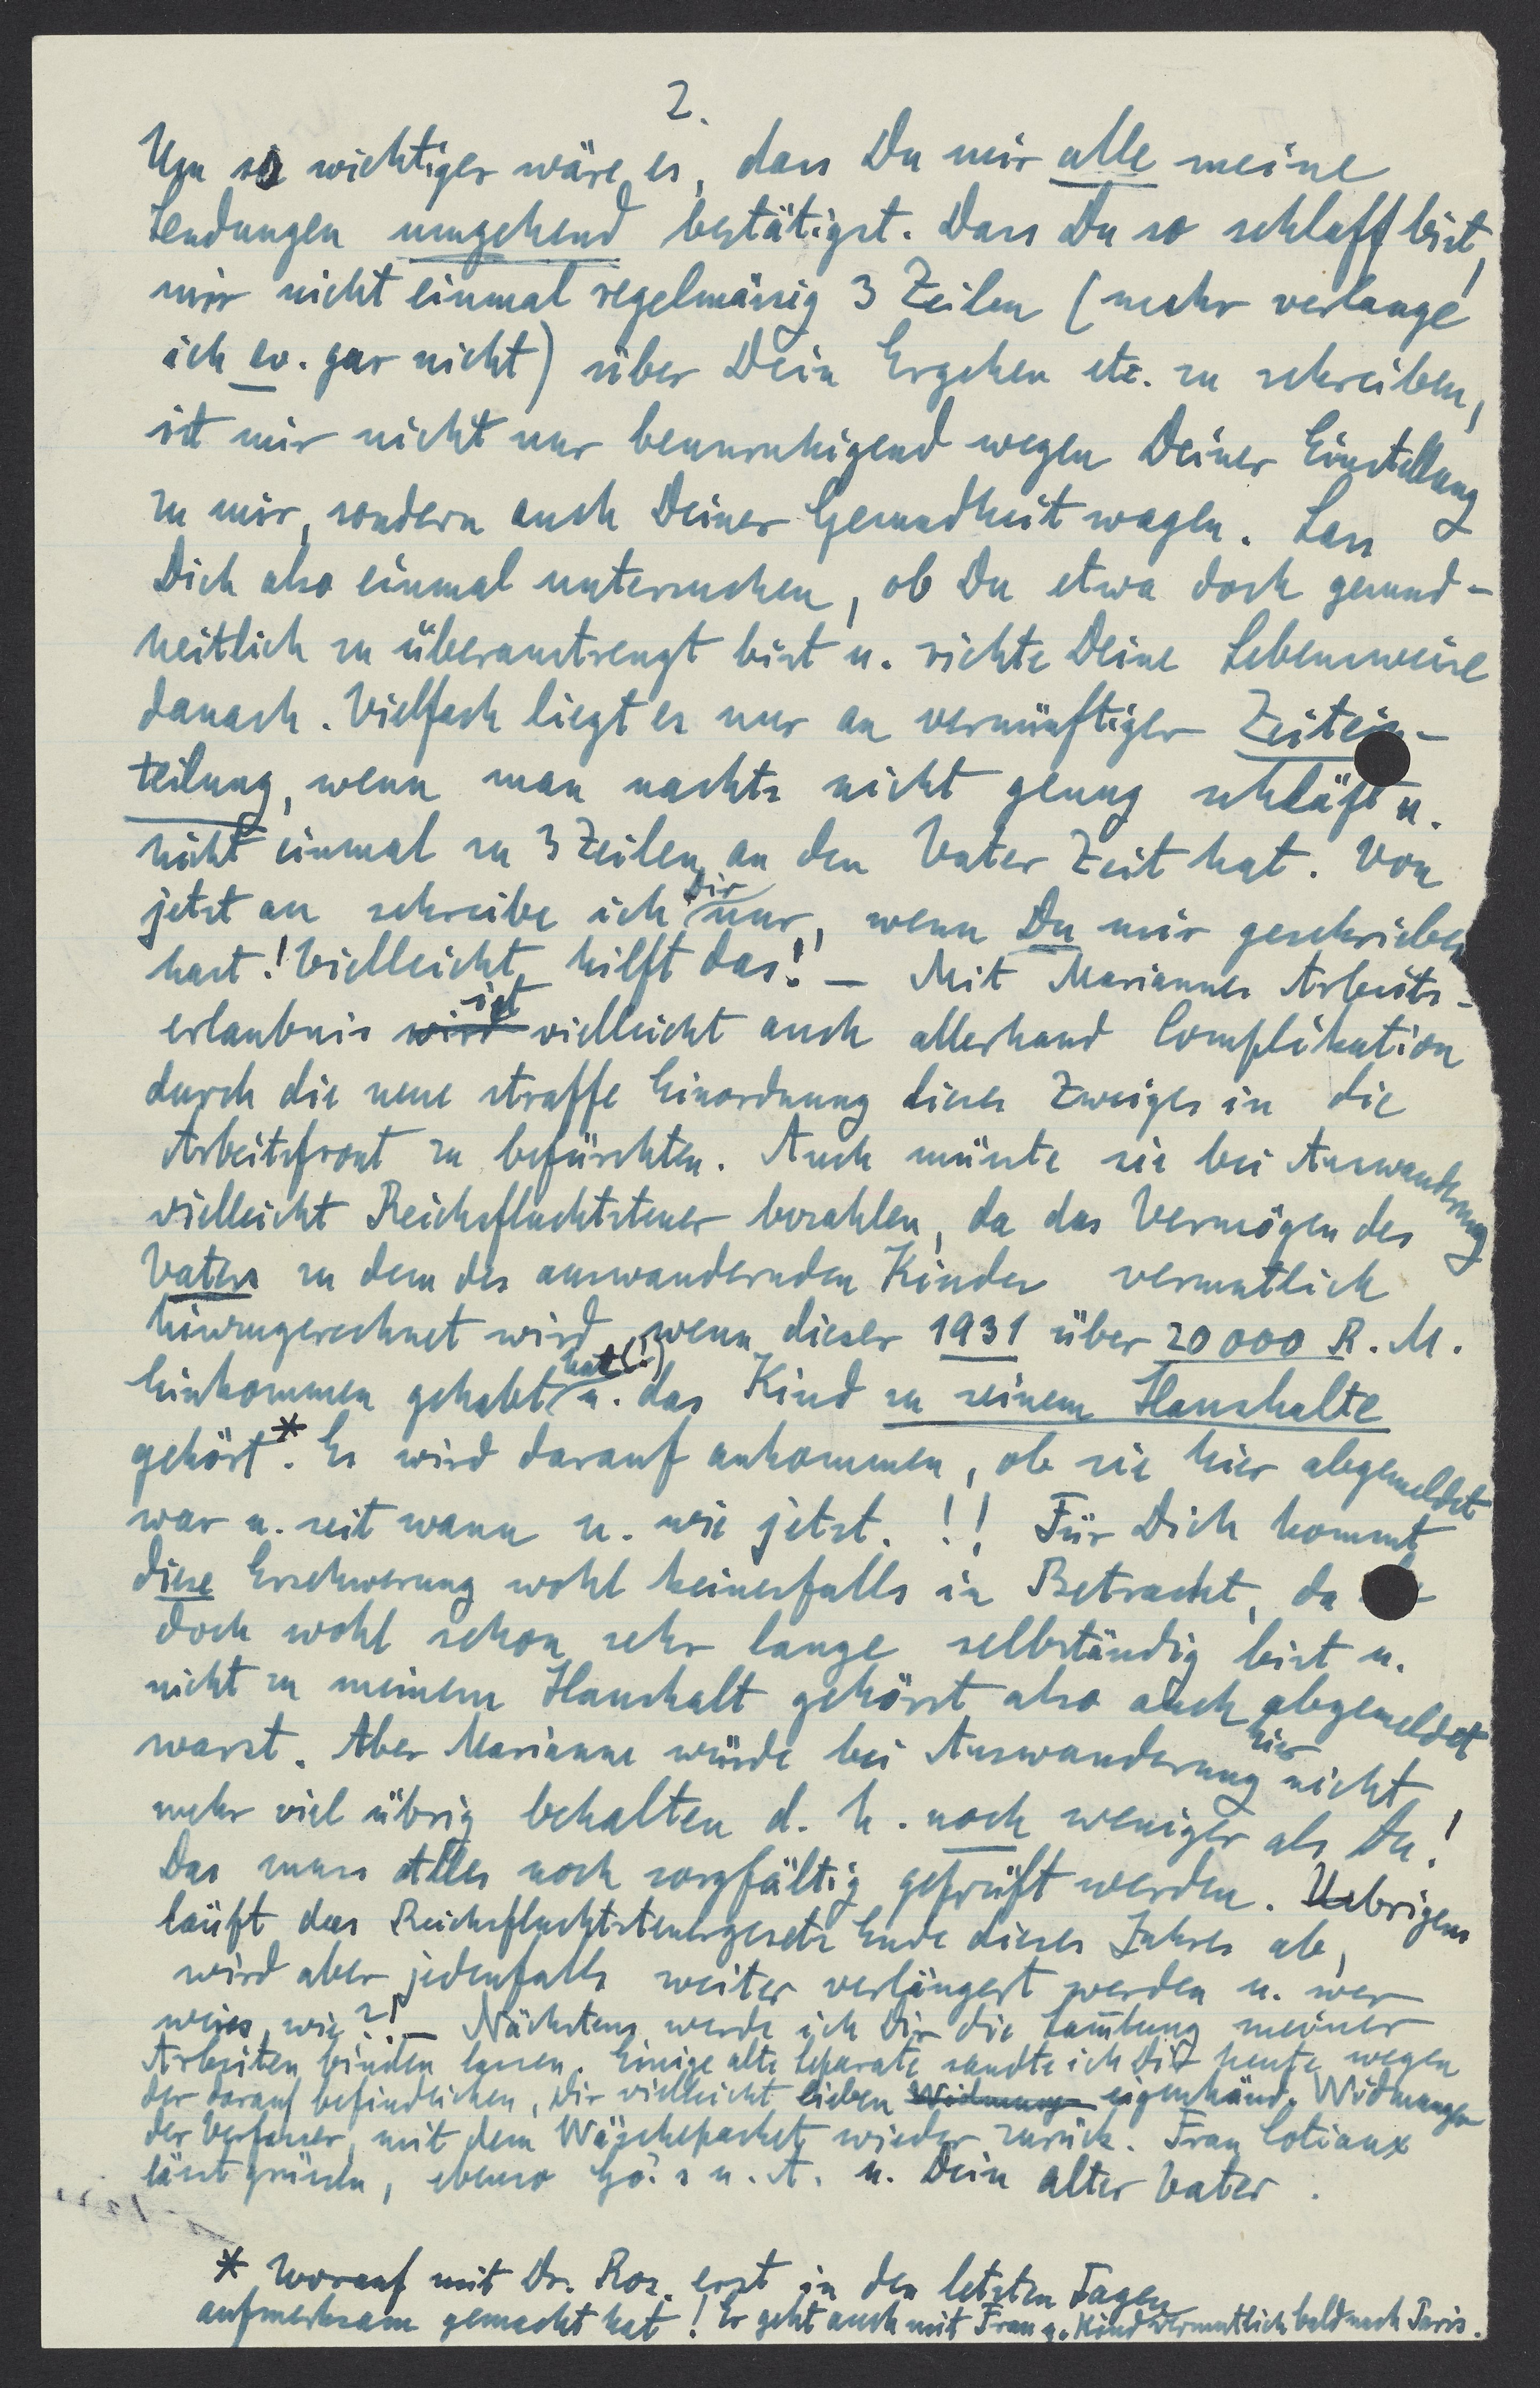 2.
Um so wichtiger wäre es, dass Du mir alle meine
Sendungen umgehend bestätigst. Dass Du so schlaff bist,
mir nicht einmal regelmässig 3 Zeilen (mehr verlange
ich ev. gar nicht) über Dein Ergehen etc. zu schreiben,
ist mir nicht nur beunruhigend wegen Deiner Einstellung
zu mir, sondern auch Deiner Gesundheit wegen. Lass
Dich also einmal untersuchen, ob Du etwa doch gesund-
heitlich zu überanstrengt bist u. richte Deine Lebensweise
danach. Vielfach liegt es nur an vernünftiger Zeitein-
teilung, wenn man nachts nicht genug schläft u.
nicht einmal zu 3 Zeilen an den Vater Zeit hat. Von
jetzt an schreibe ich Dir nur, wenn Du mir geschrieben
hast! Vielleicht hilft das! – Mit Mariannes Arbeits-
erlaubnis wird ist vielleicht auch allerhand Complikation
durch die neue straffe Einordnung dieses Zweiges in die
Arbeitsfront zu befürchten. Auch müsste sie bei Auswanderung
vielleicht Reichsfluchtsteuer bezahlen, da das Vermögen des
Vaters zu dem des auswandernden Kindes vermutlich
hinzugerechnet wird, wenn dieser 1931 über 20 000 R. M.
Einkommen gehabt hat (!) u. das Kind zu seinem Haushalte
gehört*. Es wird darauf ankommen, ob sie hier abgemeldet
war u. seit wann u. wie jetzt. !! Für Dich kommt
diese Erschwerung wohl keinesfalls in Betracht, da
doch wohl schon sehr lange selbständig bist u.
nicht zu meinem Haushalt gehörst also auch abgemeldet
warst. Aber Marianne würde bei Auswanderung hier nicht
mehr viel übrig behalten d. h. noch weniger als Du!
Das muss Alles noch sorgfältig geprüft werden. Uebrigens
läuft das Reichsfluchtsteuergesetz Ende dieses Jahres ab,
wird aber jedenfalls weiter verlängert werden u. wer
weiss, wie?! – Nächstens werde ich Dir die Sam̅lung meiner
Arbeiten binden lassen. Einige alte Separate sandte ich Dir heute wegen
der darauf befindlichen, Dir vielleicht lieben Widmung eigenhänd. Widmungen
der Verfasser, mit dem Wäschepacket wieder zurück. Frau Cotiaux
lässt grüssen, ebenso u. A. u. Dein alter Vater.
* Worauf mit Dr. Ros. erst in den letzten Tagen
aufmerksam gemacht hat! Er geht auch mit Frau u. Kind vermutlich bald nach Paris.